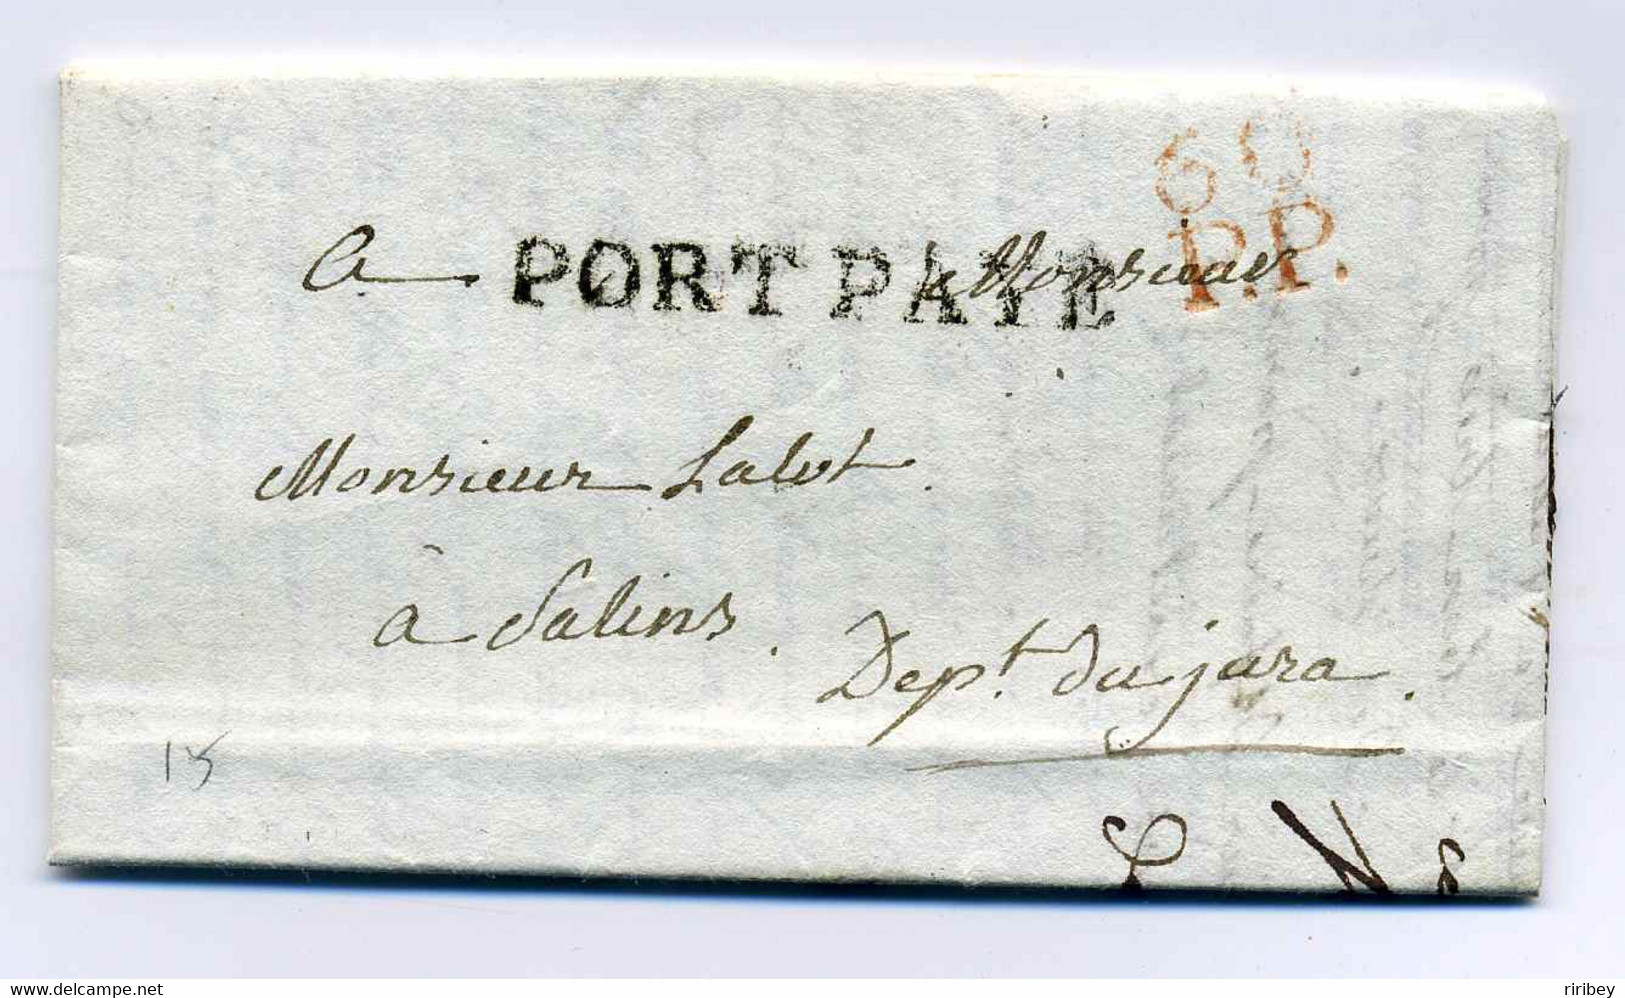 60
P.P.
PORT PAYE
a Monsieur
Monsieur Lalut
à Salins.
Dept. du jura.
18
www.delcampe.net
riribey